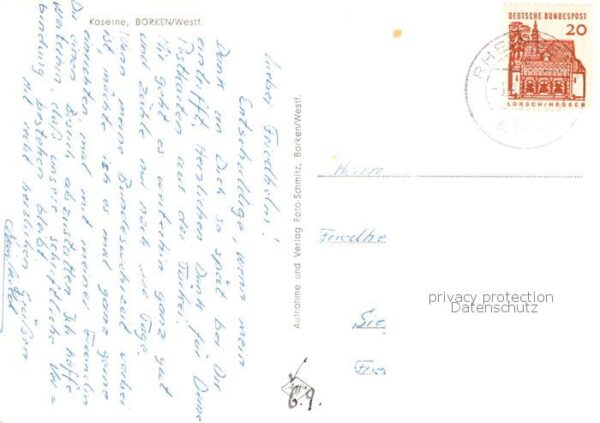 Kaserne, BORKEN/Westf.
Lieber Friedhelm!
Entschuldige, wenn mein
Dank an Dich so spät bei Dir
eintrifft. Herzlichen Dank für Deine
Postkarten aus der Türkei.
Mir geht es weiterhin ganz gut
und zähle nur noch die Tage.
Wenn meine Bundeswehrzeit vorbei
ist möchte ich es mal ganz gerne
einrichten mal mit meiner Freundin
Dir einen Besuch abzustatten. Ich hoffe
weiterhin, daß unsere schriftliche Ver=
bindung bestehen bleibt.
Mit recht herzlichen Grüßen
Aufnahme und Verlag Foto-Schmitz, Borken/Westf.
DEUTSCHE BUNDESPOST
20
LORSCH/HESSEN
RHE
Herrn
Friedhe
Sie
privacy protection
Datenschutz
6.9.